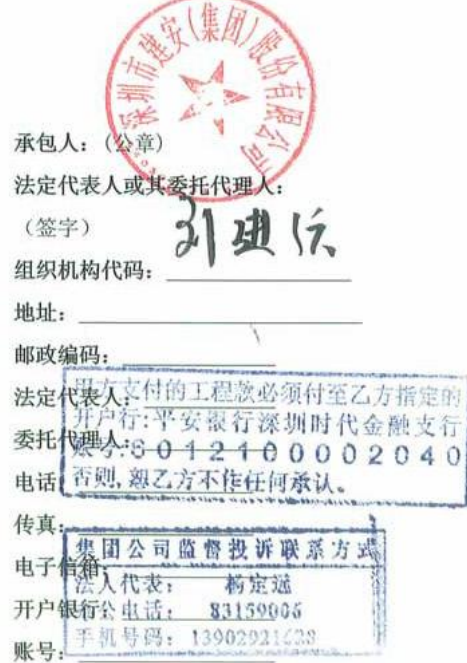 深圳市建安(集团)股份有限公司
承包人：(公章)
法定代表人或其委托代理人：
（签字）
组织机构代码：
地址：
邮政编码：
法定代表人：
委托代理人：
电话
传真：
电子信箱：
开户银行：
账号：
甲方支付的工程款必须付至乙方指定的
开户行：平安银行深圳时代金融支行
账号:6012100002040
否则，恕乙方不作任何承认。
集团公司监督投诉联系方式
法人代表： 杨定远
办公电话： 83159006
手机号码：